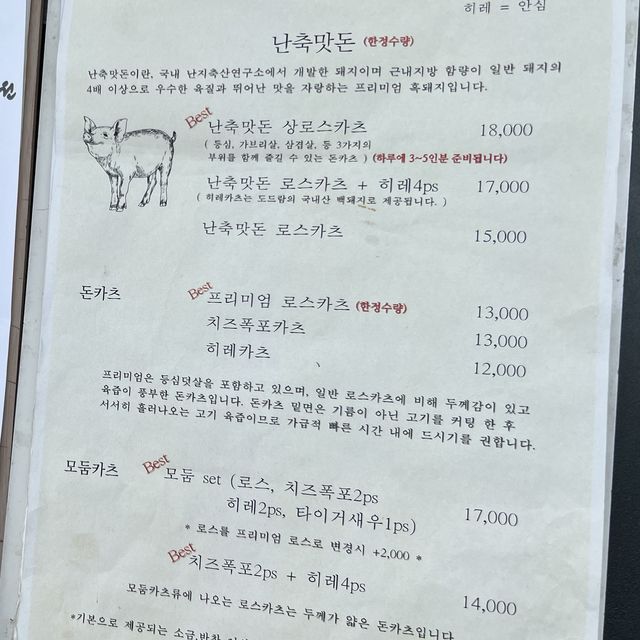 히레 = 안심
난축맛돈 (한정수량)
난축맛돈이란, 국내 난지축산연구소에서 개발한 돼지이며 근내지방 함량이 일반 돼지의
4배 이상으로 우수한 육질과 뛰어난 맛을 자랑하는 프리미엄 흑돼지입니다.
Best 난축맛돈 상로스카츠 18,000
( 등심, 가브리살, 삼겹살, 등 3가지의
부위를 함께 즐길 수 있는 돈카츠 ) (하루에 3~5인분 준비됩니다)
난축맛돈 로스카츠 + 히레4ps 17,000
( 히레카츠는 도드람의 국내산 백돼지로 제공됩니다. )
난축맛돈 로스카츠 15,000
돈카츠 Best 프리미엄 로스카츠 (한정수량) 13,000
치즈폭포카츠 13,000
히레카츠 12,000
프리미엄은 등심덧살을 포함하고 있으며, 일반 로스카츠에 비해 두께감이 있고
육즙이 풍부한 돈카츠입니다. 돈카츠 밑면은 기름이 아닌 고기를 커팅 한 후
서서히 흘러나오는 고기 육즙이므로 가급적 빠른 시간 내에 드시기를 권합니다.
모둠카츠 Best 모둠 set (로스, 치즈폭포2ps
히레2ps, 타이거새우1ps) 17,000
* 로스를 프리미엄 로스로 변경시 +2,000 *
Best 치즈폭포2ps + 히레4ps 14,000
모둠카츠류에 나오는 로스카츠는 두께가 얇은 돈카츠입니다
*기본으로 제공되는 소금,반찬